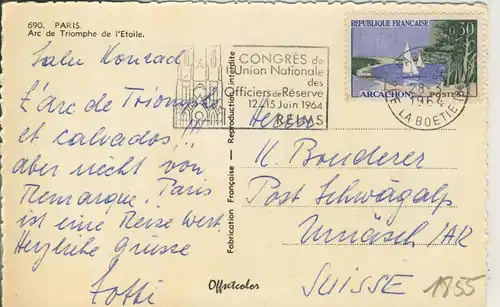 690. PARIS.
Arc de Triomphe de l'Etoile.
Salu Konrad
L'arc de Triomphe
et calvados!!!
aber nicht von
Remarque. Paris
ist eine Reise Wert.
Herzliche Grüsse
CONGRÈS de
l'Union Nationale
des
Officiers de Réserve
12-15 Juin 1964
REIMS
REPUBLIQUE FRANÇAISE
0,30
ARCACHON POSTES
1964
LA BOETIE
Fabrication Française — Reproduction interdite
Herrn
K Bonderer
Post Schwägalp
Urnäsch/AR
SUISSE
1855
Offsetcolor